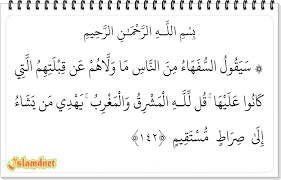 بِسْمِ اللَّـهِ الرَّحْمَـٰنِ الرَّحِيمِ
۞ سَيَقُولُ السُّفَهَاءُ مِنَ النَّاسِ مَا وَلَّاهُمْ عَن قِبْلَتِهِمُ الَّتِي
كَانُوا عَلَيْهَا ۚ قُل لِّلَّـهِ الْمَشْرِقُ وَالْمَغْرِبُ ۚ يَهْدِي مَن يَشَاءُ
إِلَىٰ صِرَاطٍ مُّسْتَقِيمٍ ﴿١٤٢﴾
islamdnet